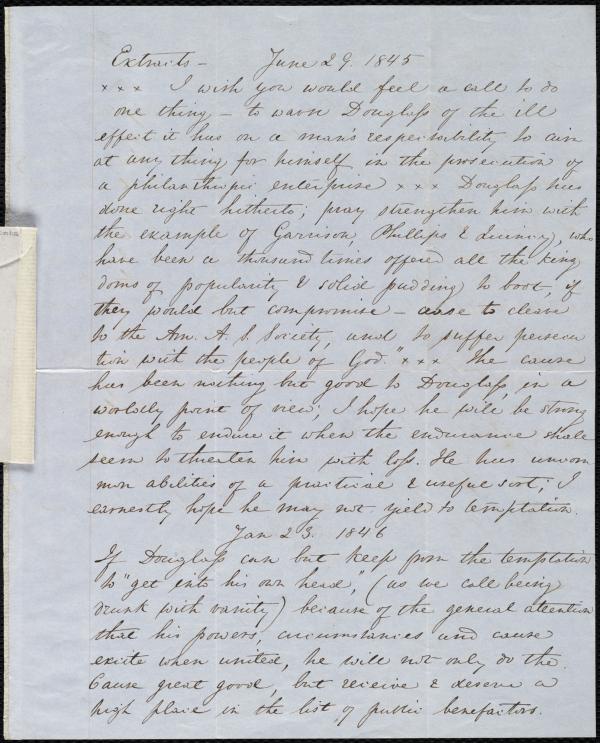 Extracts — June 29. 1845
× × × I wish you would feel a call to do
one thing — to warn Douglass of the ill
effect it has on a man's respectability to aim
at any thing for himself in the prosecution of
a philanthropic enterprise × × × Douglass has
done right hitherto; pray strengthen him with
the example of Garrison, Phillips & Quincy, who
have been a thousand times offered all the king
doms of popularity & solid pudding to boot, if
they would but compromise — cease to cleave
to the Am. A. S. Society, and to suffer persecu
tion with the people of God." × × × The cause
has been nothing but good to Douglass, in a
worldly point of view; I hope he will be strong
enough to endure it when the endurance shall
seem to threaten him with loss. He has uncom
mon abilities of a practical & useful sort; I
earnestly hope he may not yield to temptation.
Jan 23. 1846
If Douglass can but keep from the temptation
to "get into his own head," (as we call being
drunk with vanity) because of the general attention
that his powers, circumstances and cause
excite when united, he will not only do the
Cause great good, but receive & deserve a
high place in the list of public benefactors.